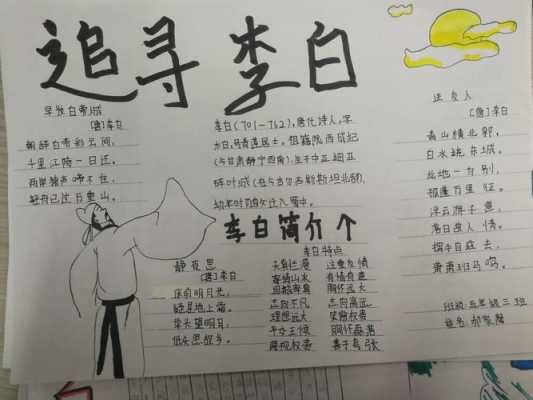 追寻李白
早发白帝城
[唐]李白
朝辞白帝彩云间,
千里江陵一日还。
两岸猿声啼不住,
轻舟已过万重山。
李白(701-762),唐代诗人,字
太白,号青莲居士,祖籍陇西成纪
(今甘肃静宁西南),生于中亚
碎叶城(在今吉尔吉斯斯坦北部),
幼年时随父迁入蜀中。
送友人
[唐]李白
青山横北郭,
白水绕东城。
此地一为别,
孤蓬万里征。
浮云游子意,
落日故人情。
挥手自兹去,
萧萧班马鸣。
李白简介个
李白特点
天真烂漫 注重友情
寄情山水
胸怀远大
志向不凡 志向高远
理想远大 笑傲权贵
蔑视权贵 善于夸张
静夜思
[唐]李白
床前明月光,
疑是地上霜。
举头望明月,
低头思故乡。
班级:五年级三班
姓名: